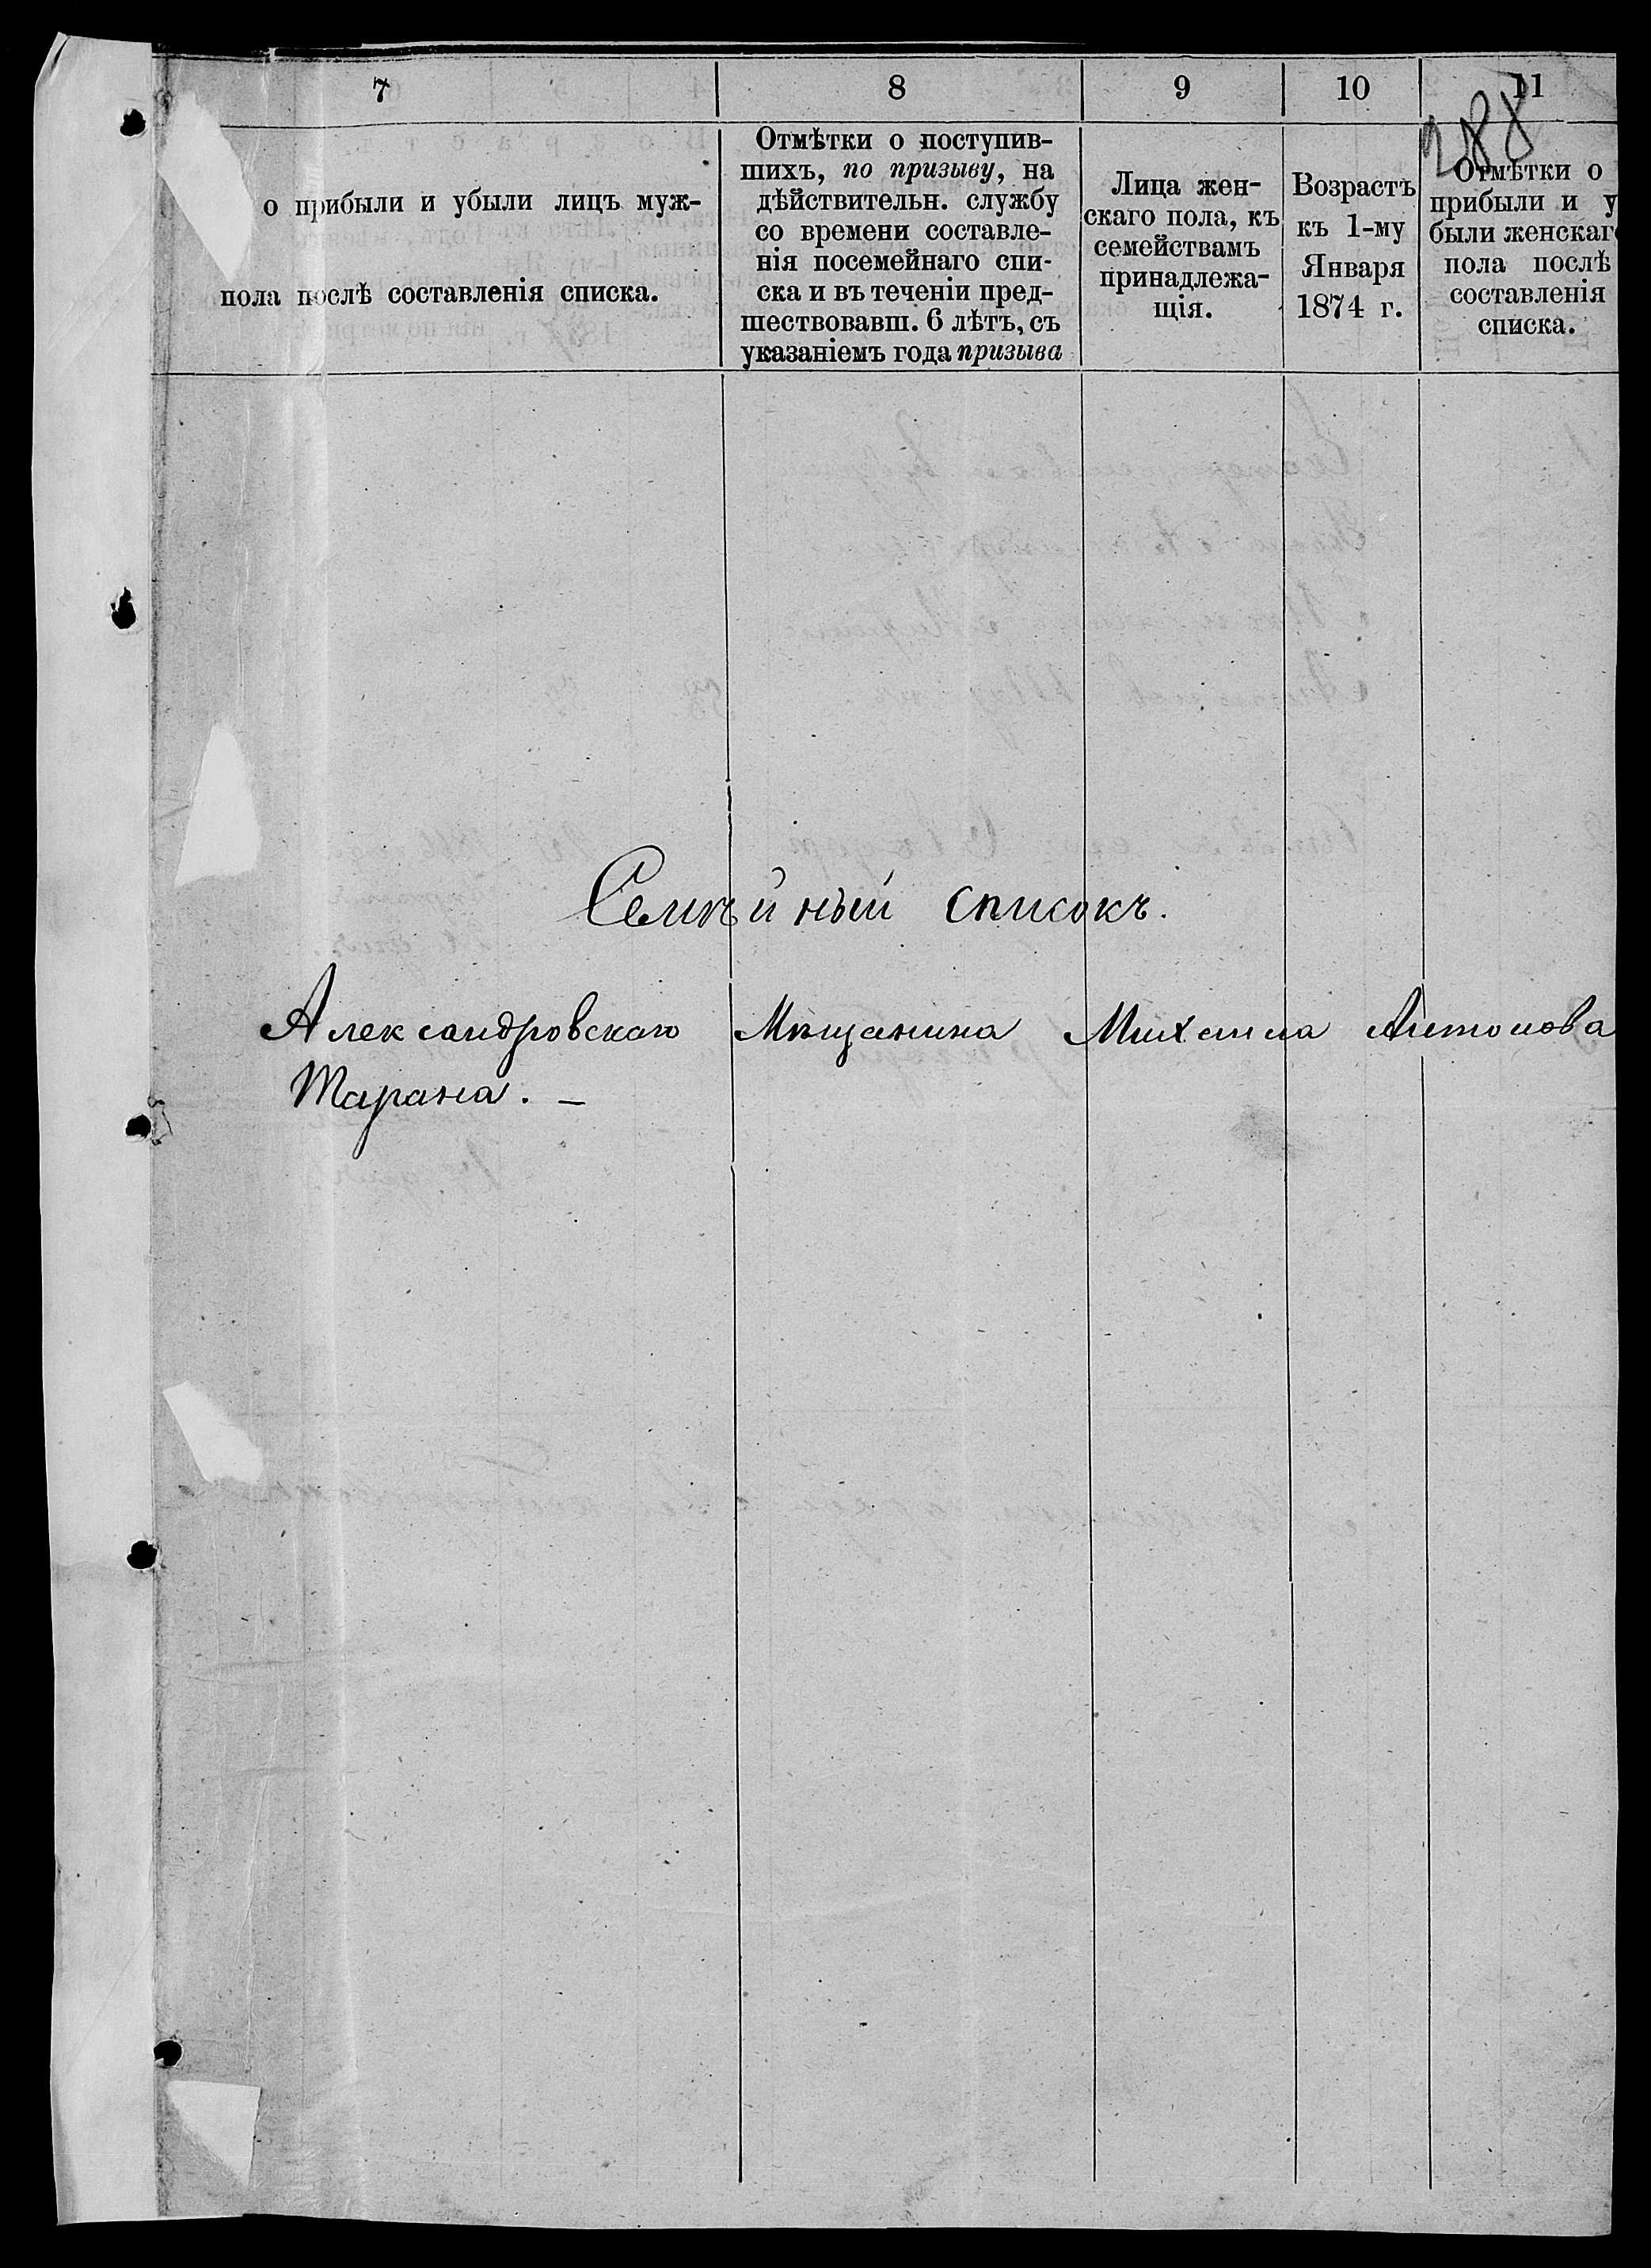 7
8
9
10
11
288
о прибыли и убыли лицъ муж-
пола послѣ составленія списка.
Отмѣтки о поступив-
шихъ, по призыву, на
дѣйствительн. службу
со времени составле-
нія посемейнаго спи-
ска и въ теченіи пред-
шествовавш. 6 лѣтъ, съ
указаніемъ года призыва
Лица жен-
скаго пола, къ
семействамъ
принадлежа-
щія.
Возрастъ
къ 1-му
Января
1874 г.
Отмѣтки о
прибыли и у
были женскаго
пола послѣ
составленія
списка.
Семѣйный списокъ.
Александровскаго Мѣщанина Михаила Антонова
Тарана. —